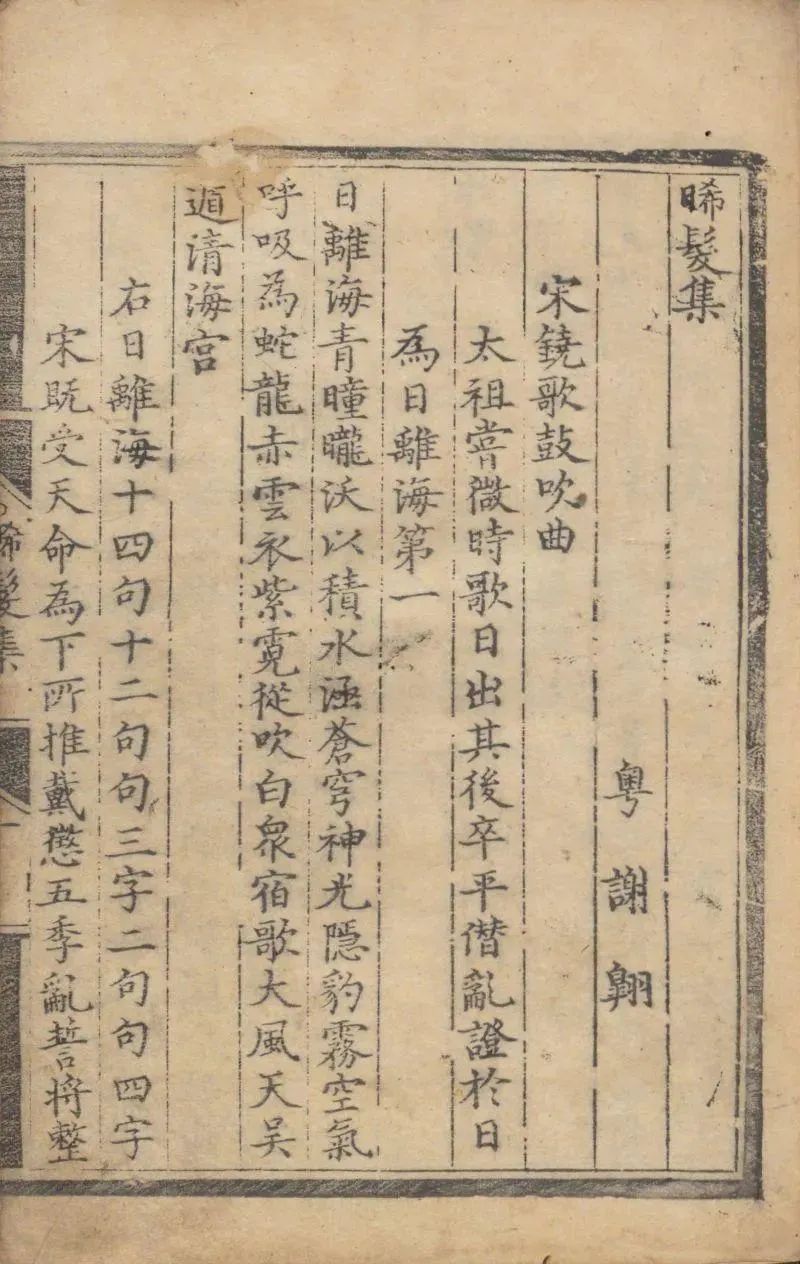 晞髮集
粵謝翱
宋鐃歌鼓吹曲
太祖嘗微時歌日出其後卒平僭亂證於日
為日離海第一
日離海青曈曨沃以積水涵蒼穹神光隱豹霧空氣
呼吸為蛇龍赤雲衣紫霓從吹白衆宿歌大風天吳
遁清海宫
右日離海十四句十二句句三字二句句四字
宋既受天命為下所推戴懲五季亂誓将整
晞髮集